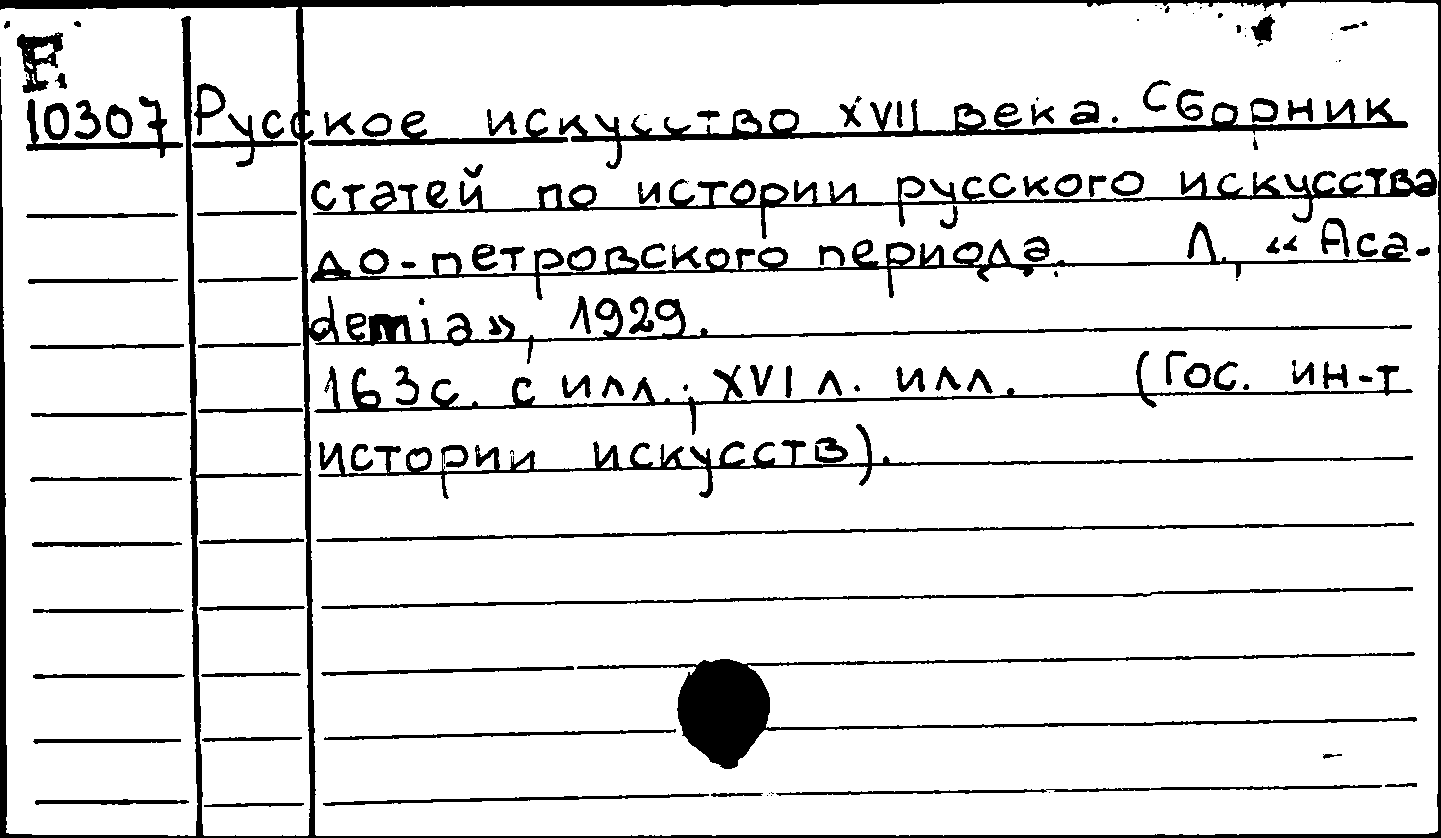 F.
10307 Русское искусство XVII века. Сборник
статей по истории русского искусства
до-петровского периода. Л., «Aca-
demia», 1929.
163с. с илл.; XVI л. илл. (Гос. ин-т
истории искусств).